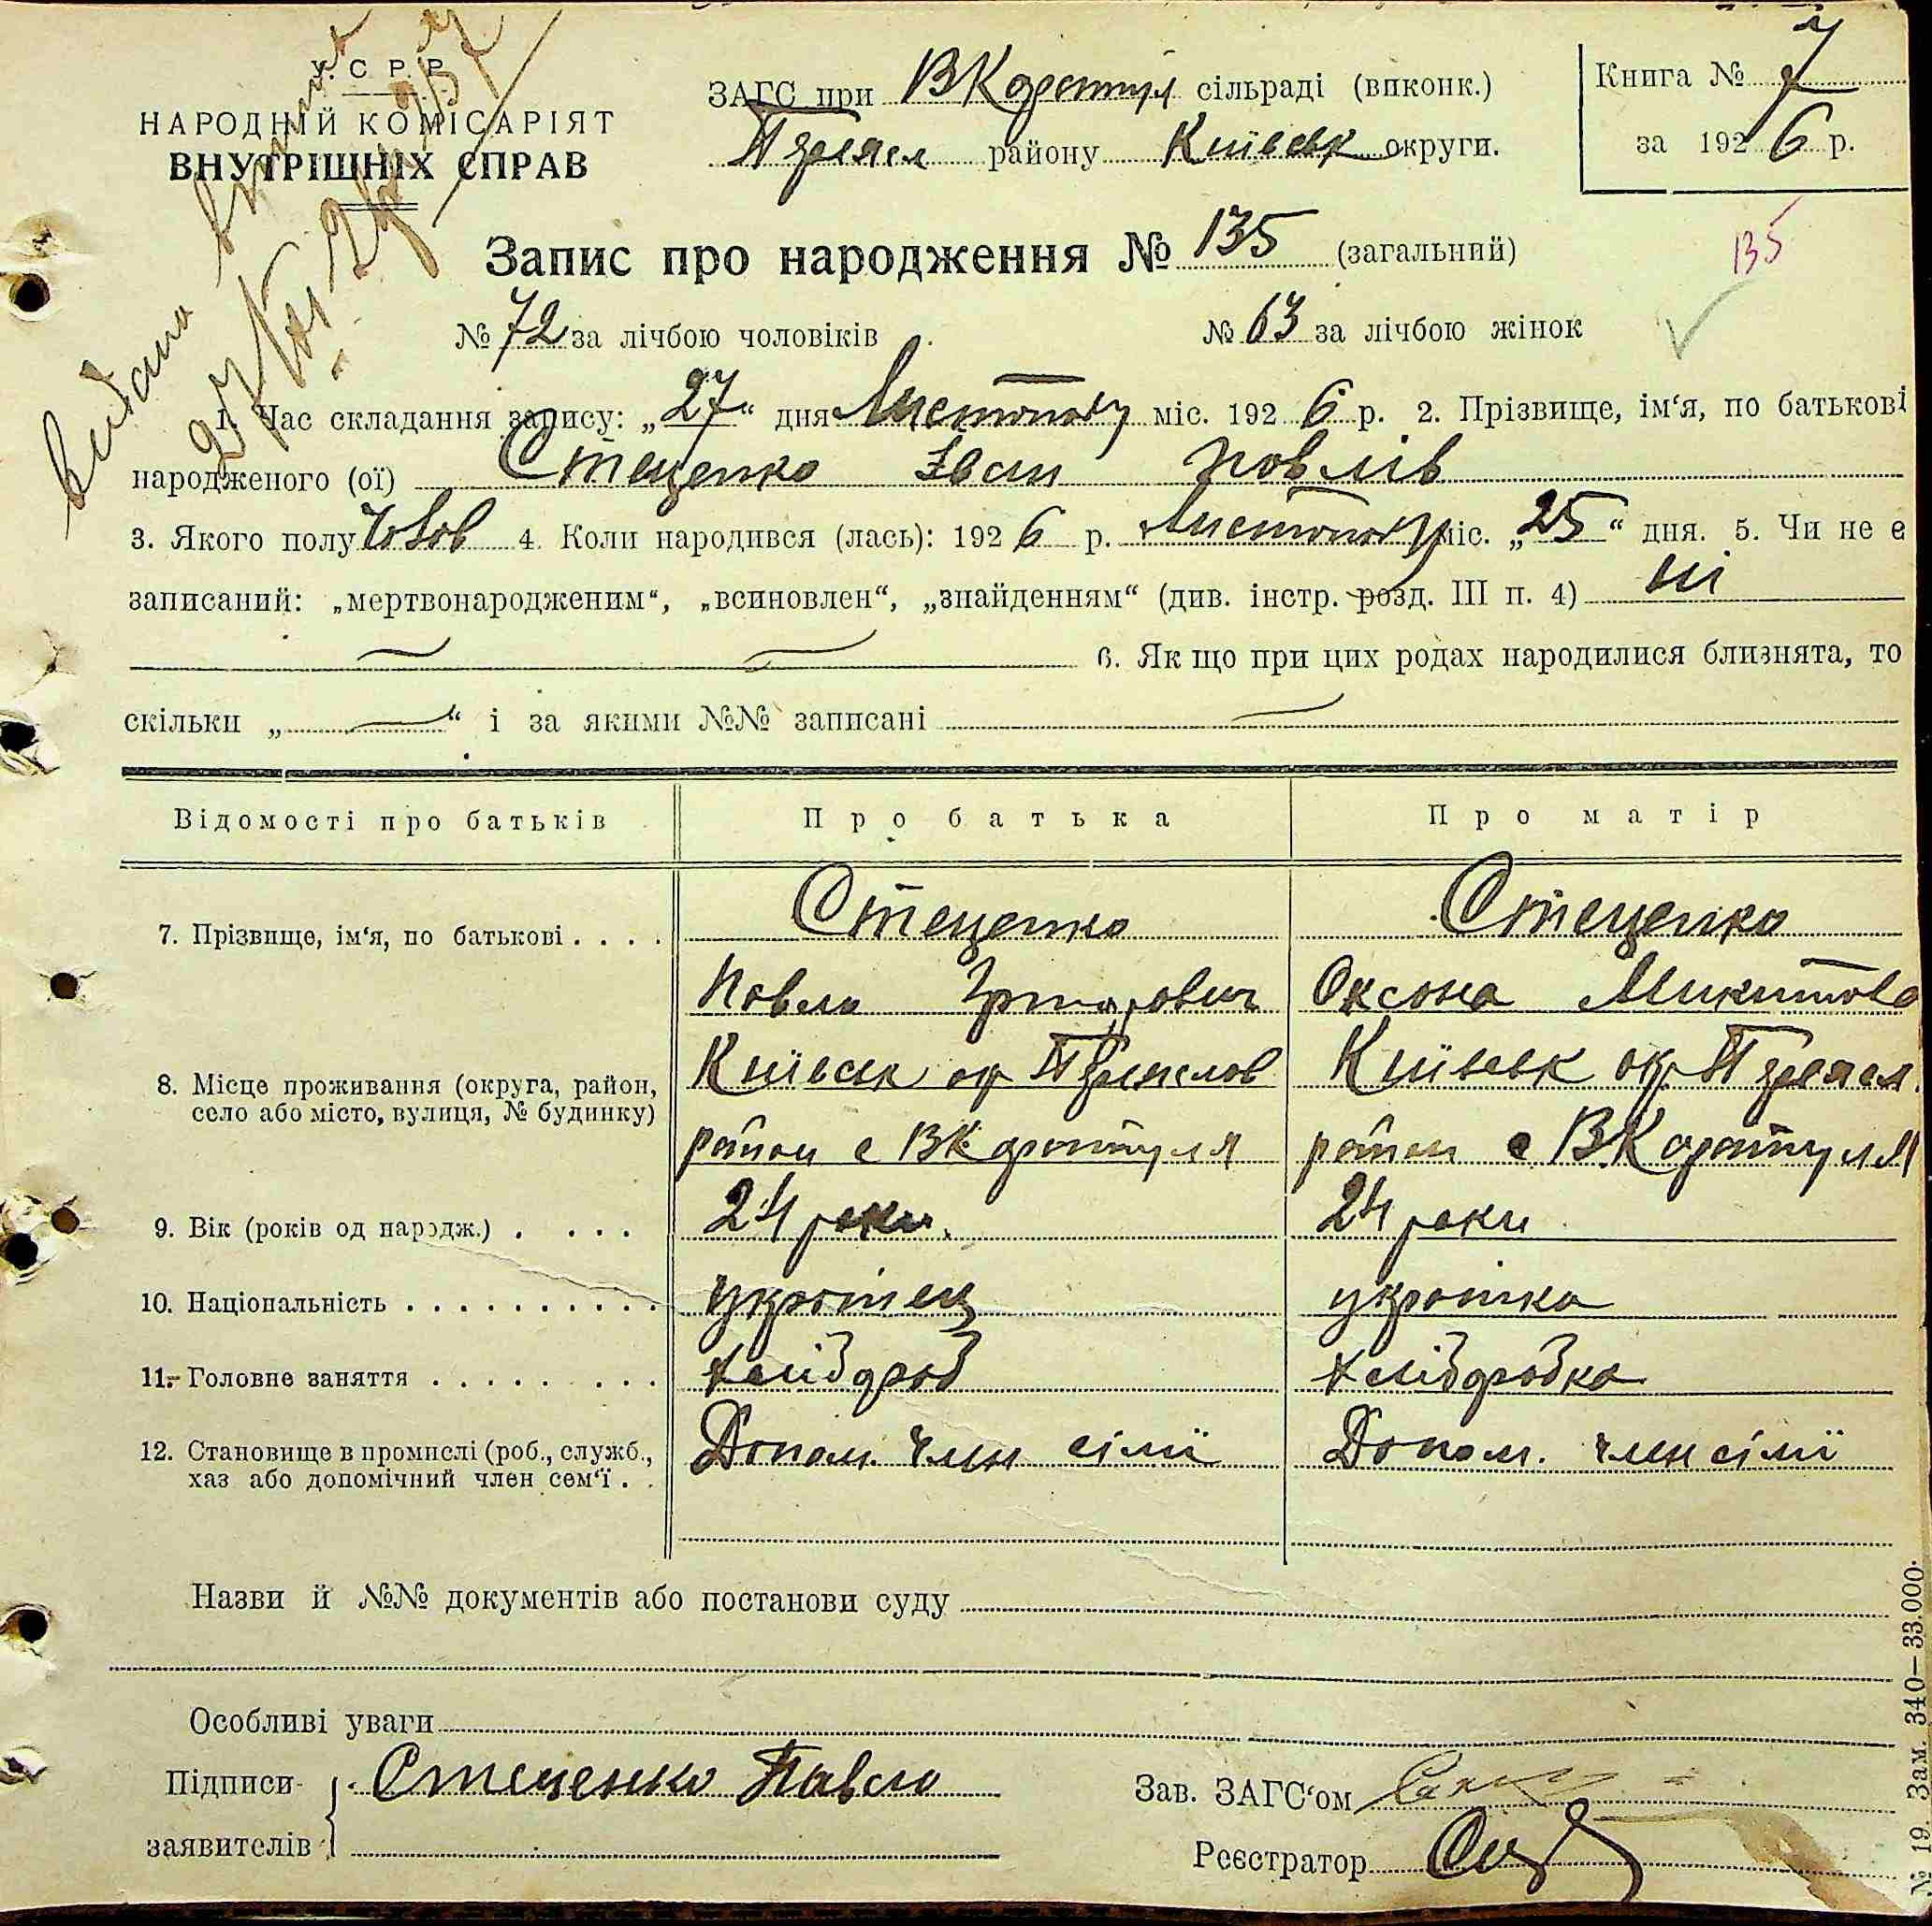 У.С.Р.Р.
НАРОДНІЙ КОМІСАРІЯТ
ВНУТРІШНІХ СПРАВ
ЗАГС при ВКаратул сільраді (виконк.)
Переясл району Київськ округи.
Книга № 7
за 1926 р.
Запис про народження № 135 (загальний)
135
№ 72 за лічбою чоловіків № 63 за лічбою жінок
1. Час складання запису: „27“ дня Листопаду міс. 1926 р. 2. Прізвище, ім‘я, по батькові
народженого (ої) Стеценко Іван Павлів
3. Якого полу Чолов 4. Коли народився (лась): 1926 р. Листопаду міс. „25“ дня. 5. Чи не є
записаний: „мертвонародженим“, „всиновлен“, „знайденням“ (див. інстр. розд. III п. 4) ні
6. Як що при цих родах народилися близнята, то
скільки „ — “ і за якими №№ записані —
Відомості про батьків Про батька Про матір
7. Прізвище, ім‘я, по батькові . . . . Стеценко Стеценко
Павло Григорович Оксана Микитова
8. Місце проживання (округа, район, Київськ ок Переяслов Київськ ок. Переясл.
село або місто, вулиця, № будинку) район с ВКаратуля район с В.Каратуля
9. Вік (років од народж.) . . . . 24 роки. 24 роки
10. Національність . . . . . . . . . . . україінец україінка
11. Головне заняття . . . . . . . . хлібороб хліборобка
12. Становище в промислі (роб., служб., Допом. член сімї Допом. член сімї
хаз або допомічний член сем‘ї . .
Назви й №№ документів або постанови суду
Особливі уваги
Підписи Стеценко Павло
заявителів
Зав. ЗАГС‘ом
Реєстратор
№ 19. Зам. 340—33.000.